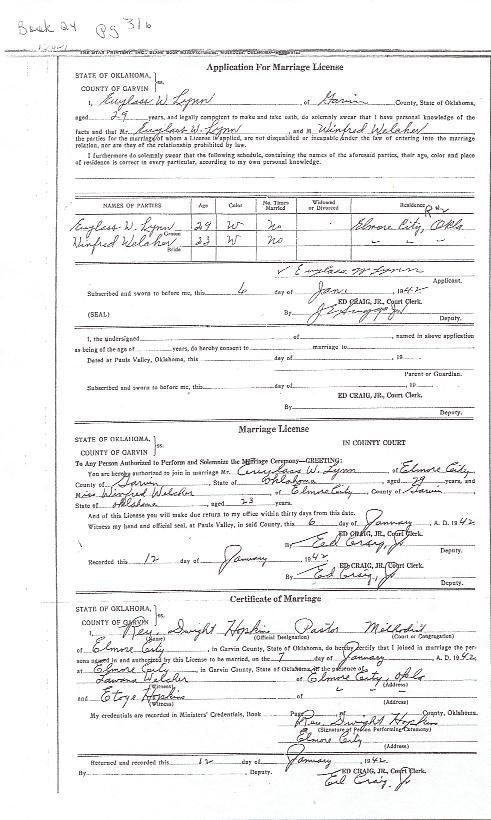 Book 24 pg 316
THE STAR PRINTERY, INC., BLANK BOOK MANUFACTURERS, MUSKOGEE, OKLAHOMA
Application For Marriage License
STATE OF OKLAHOMA,
COUNTY OF GARVIN } ss.
I, Euglass W. Lynn of Garvin County, State of Oklahoma,
aged 29 years, and legally competent to make and take oath, do solemnly swear that I have personal knowledge of the
facts and that Mr. Euglass W. Lynn, and M Winfred Welcher
the parties for the marriage of whom a License is applied, are not disqualified or incapable under the law of entering into the marriage
relation, nor are they of the relationship prohibited by law.
I furthermore do solemnly swear that the following schedule, containing the names of the aforesaid parties, their age, color and place
of residence is correct in every particular, according to my own personal knowledge.
NAMES OF PARTIES Age Color No. Times Married Widowed or Divorced Residence
Euglass W. Lynn Groom 29 W No Elmore City, Okla
Winfred Welcher Bride 23 W No " " "
Euglass W Lynn
Applicant.
Subscribed and sworn to before me, this 6 day of Jan, 1942
ED CRAIG, JR., Court Clerk.
(SEAL) By
Deputy.
I, the undersigned of , named in above application
as being of the age of years, do hereby consent to marriage to
Dated at Pauls Valley, Oklahoma, this day of , 19
Parent or Guardian.
Subscribed and sworn to before me, this day of , 19
ED CRAIG, JR., Court Clerk.
By
Deputy.
Marriage License
STATE OF OKLAHOMA,
COUNTY OF GARVIN } ss.
IN COUNTY COURT
To Any Person Authorized to Perform and Solemnize the Marriage Ceremony—GREETING:
You are hereby authorized to join in marriage Mr. Euglass W. Lynn of Elmore City
County of Garvin, State of Oklahoma, aged 29 years, and
Miss Winfred Welcher of Elmore City, County of Garvin,
State of Oklahoma, aged 23 years.
And of this License you will make due return to my office within thirty days from this date.
Witness my hand and official seal, at Pauls Valley, in said County, this 6 day of January, A. D. 1942
ED CRAIG, JR., Court Clerk.
By Ed Craig, Jr
Deputy.
Recorded this 12 day of January, 1942
ED CRAIG, JR., Court Clerk.
By Ed Craig, Jr
Deputy.
Certificate of Marriage
STATE OF OKLAHOMA,
COUNTY OF GARVIN } ss.
I, Rev. Dwight Hopkins Pastor Methodist
(Name) (Official Designation) (Court or Congregation)
of Elmore City, in Garvin County, State of Oklahoma, do hereby certify that I joined in marriage the per-
sons named in and authorized by this License to be married, on the 7 day of January, A. D. 1942
at Elmore City in Garvin County, State of Oklahoma, in the presence of
Lawana Welcher of Elmore City, Okla
(Witness) (Address)
and Etoye Hopkins of " "
(Witness) (Address)
My credentials are recorded in Ministers' Credentials, Book Page County, Oklahoma.
Rev. Dwight Hopkins
(Signature of Person Performing Ceremony)
Elmore City
(Address)
Returned and recorded this 12 day of January, 1942
By Deputy. ED CRAIG, JR., Court Clerk.
Ed Craig, Jr